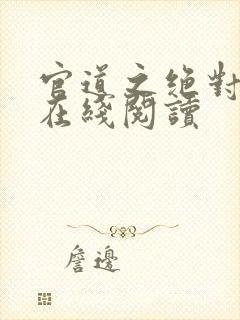 官道之絕對
在綫閱讀
詹邊